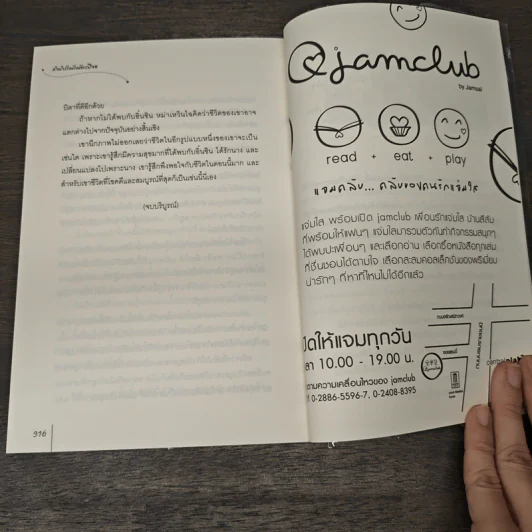 บิดาที่ดีอีกด้วย
ถ้าหากไม่ได้พบกับอิ้นชิน หม่าเหวินไฉคิดว่าชีวิตของเขาอาจ
แตกต่างไปจากปัจจุบันอย่างสิ้นเชิง
เขานึกภาพไม่ออกเลยว่าชีวิตในอีกรูปแบบหนึ่งของเขาจะเป็น
เช่นใด เพราะเขารู้สึกมีความสุขมากที่ได้พบกับอิ้นชิน ได้รักนาง และ
เปลี่ยนแปลงไปเพราะนาง เขารู้สึกพึงพอใจกับชีวิตในตอนนี้มาก และ
สำหรับเขาชีวิตที่โชคดีและสมบูรณ์ที่สุดก็เป็นเช่นนี้นี่เอง
(จบบริบูรณ์)
916
jamclub
by Jamsai
read + eat + play
แจมคลับ... คลับของคนรักแจ่มใส
แจ่มใส พร้อมเปิด jamclub เพื่อนรักแจ่มใส บ้านสีส้ม
ที่พร้อมให้แฟนๆ แจ่มใสมารวมตัวกันทำกิจกรรมสนุกๆ
ได้พบปะเพื่อนๆ และเลือกอ่าน เลือกซื้อหนังสือทุกเล่ม
ที่ชื่นชอบได้ตามใจ เลือกสะสมคอลเล็กชั่นของพรีเมี่ยม
น่ารักๆ ที่หาที่ไหนไม่ได้อีกแล้ว
ปิดให้แจมทุกวัน
ลา 10.00 - 19.00 น.
ตามความเคลื่อนไหวของ jamclub
0-2886-5596-7, 0-2408-8395